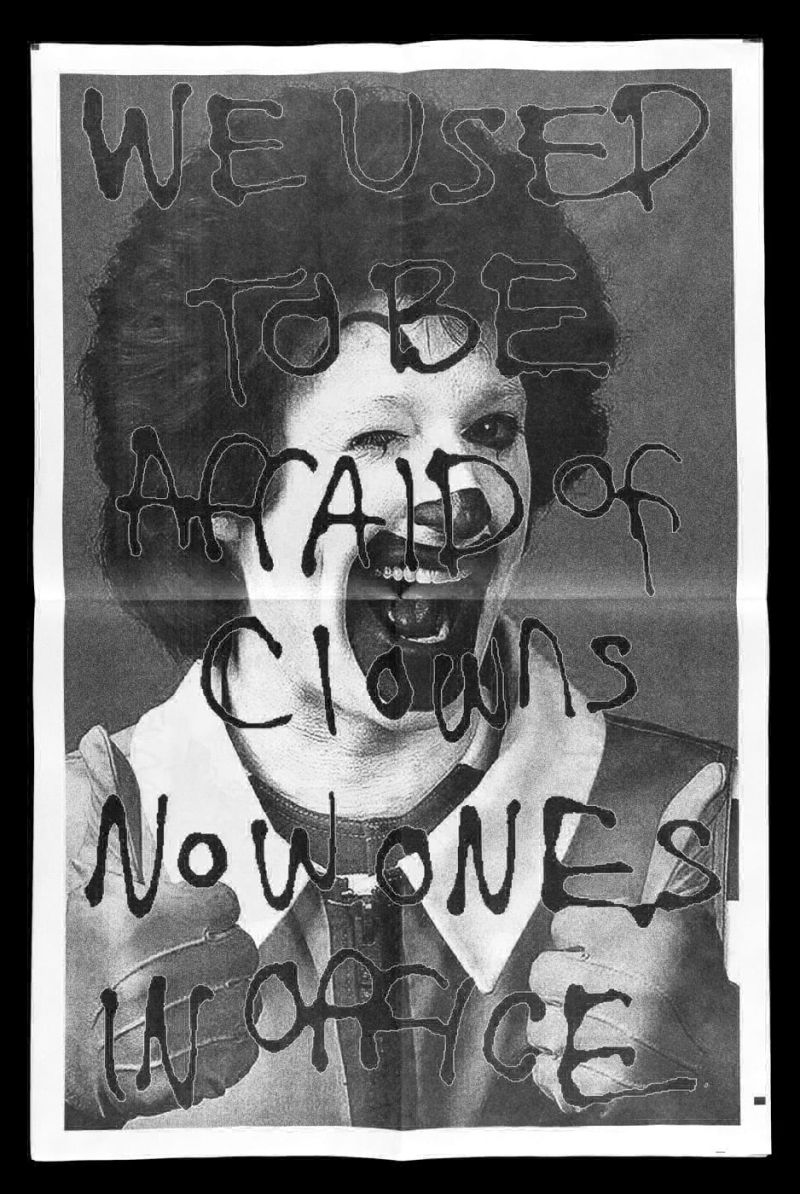 WE USED
TO BE
AFRAID OF
Clowns
NOW ONES
IN OFFICE